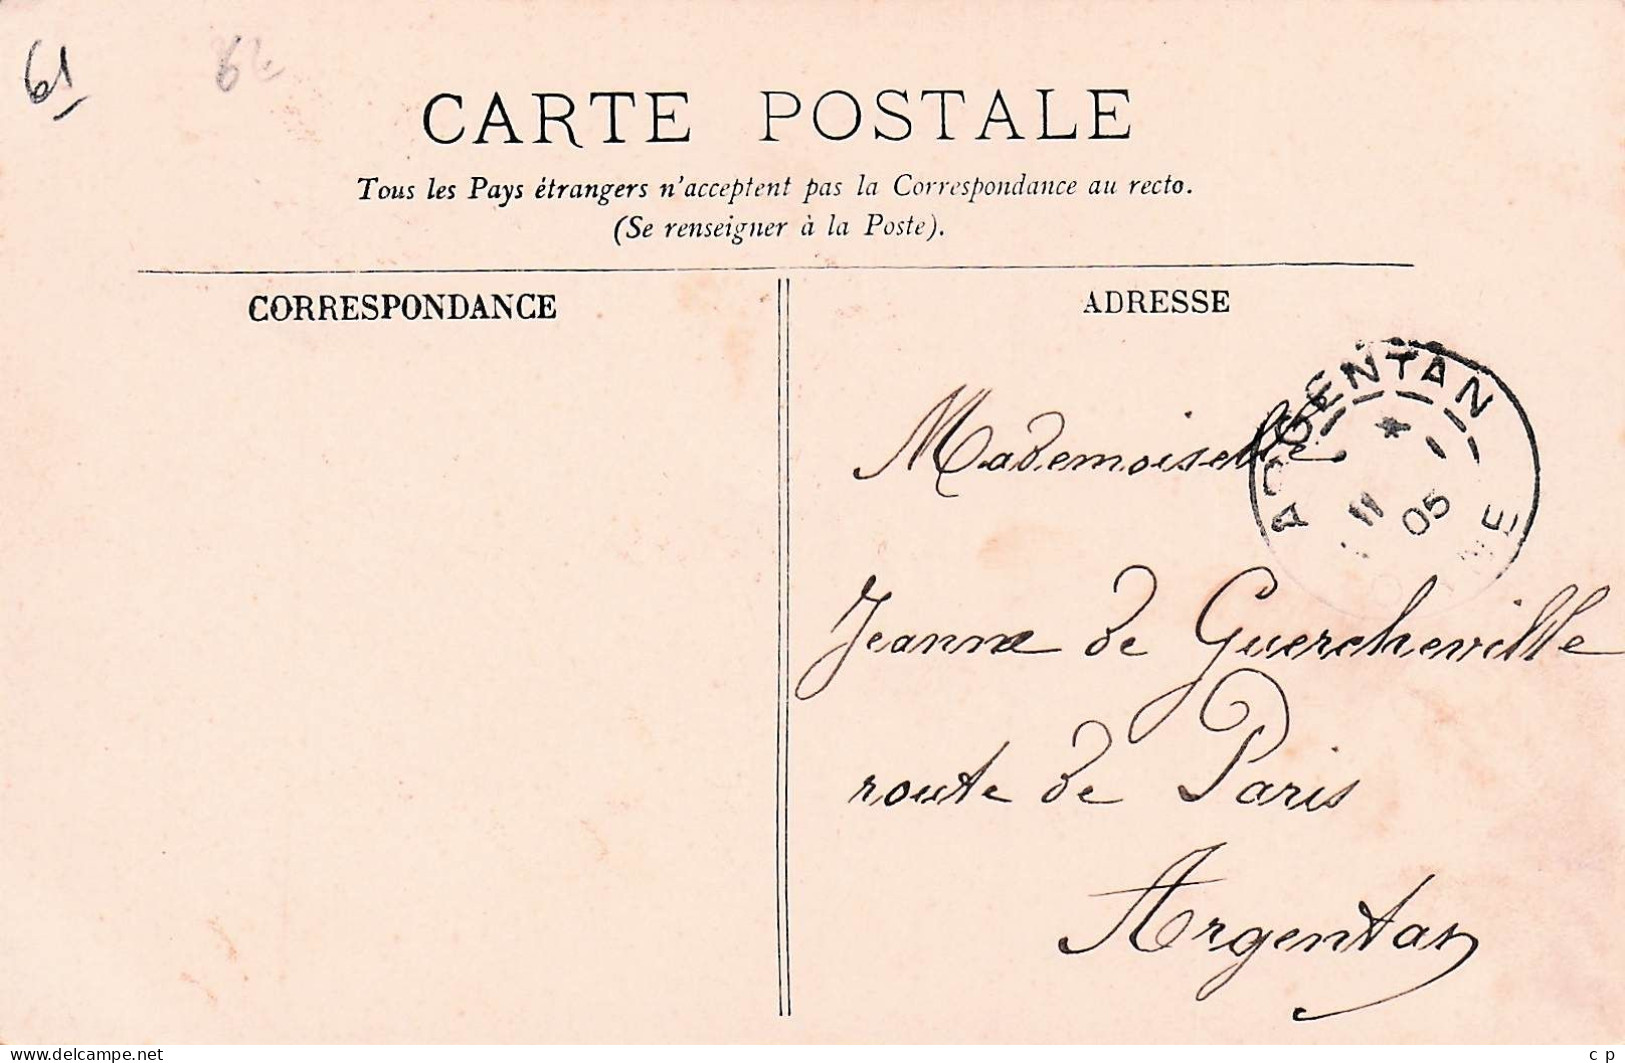 61
CARTE POSTALE
Tous les Pays étrangers n'acceptent pas la Correspondance au recto.
(Se renseigner à la Poste).
CORRESPONDANCE
ADRESSE
ARGENTAN
11
05
ORNE
Mademoiselle
Jeanne de Guercheville
route de Paris
Argentan
www.delcampe.net
c p